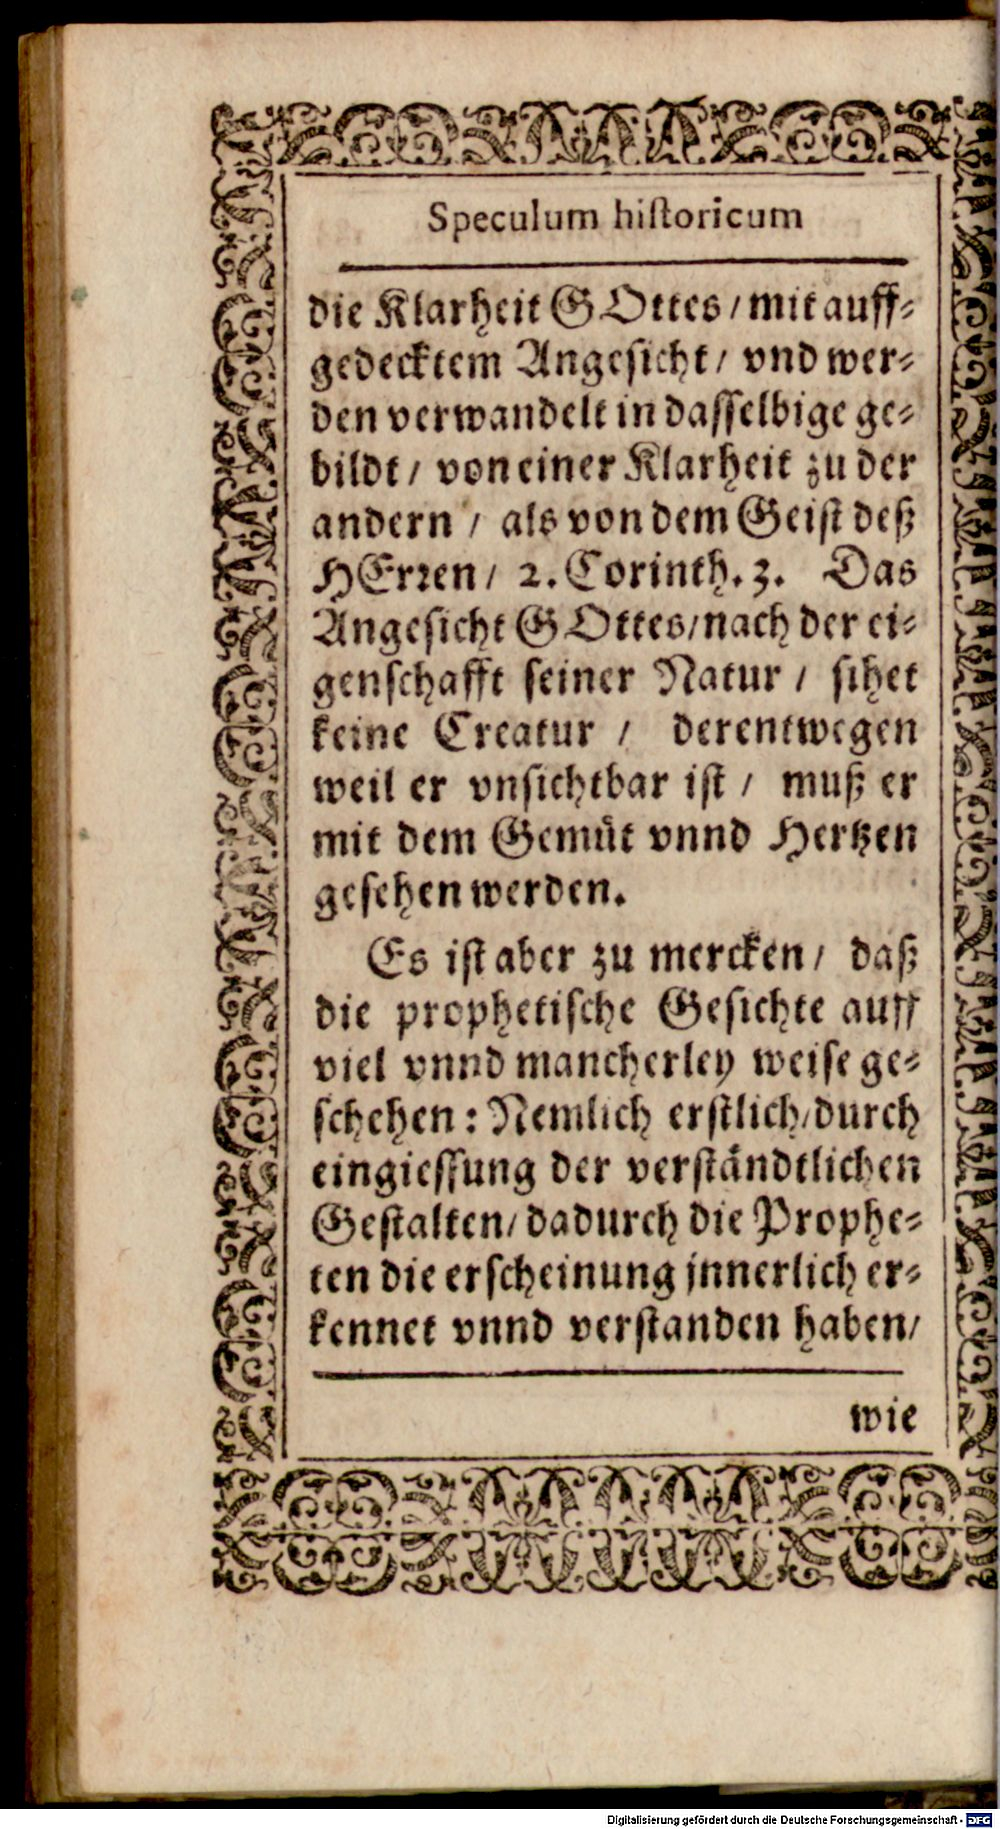 Speculum historicum
die Klarheit GOttes / mit auff⸗
gedecktem Angesicht / vnd wer⸗
den verwandelt in dasselbige ge⸗
bildt / von einer Klarheit zu der
andern / als von dem Geist deß
HErren / 2. Corinth. 3. Das
Angesicht GOttes / nach der ei⸗
genschafft seiner Natur / sihet
keine Creatur / derentwegen
weil er vnsichtbar ist / muß er
mit dem Gemüt vnnd Hertzen
gesehen werden.
Es ist aber zu mercken / daß
die prophetische Gesichte auff
viel vnnd mancherley weise ge⸗
schehen : Nemlich erstlich / durch
eingiessung der verständtlichen
Gestalten / dadurch die Prophe⸗
ten die erscheinung jnnerlich er⸗
kennet vnnd verstanden haben /
wie
Digitalisierung gefördert durch die Deutsche Forschungsgemeinschaft - DFG